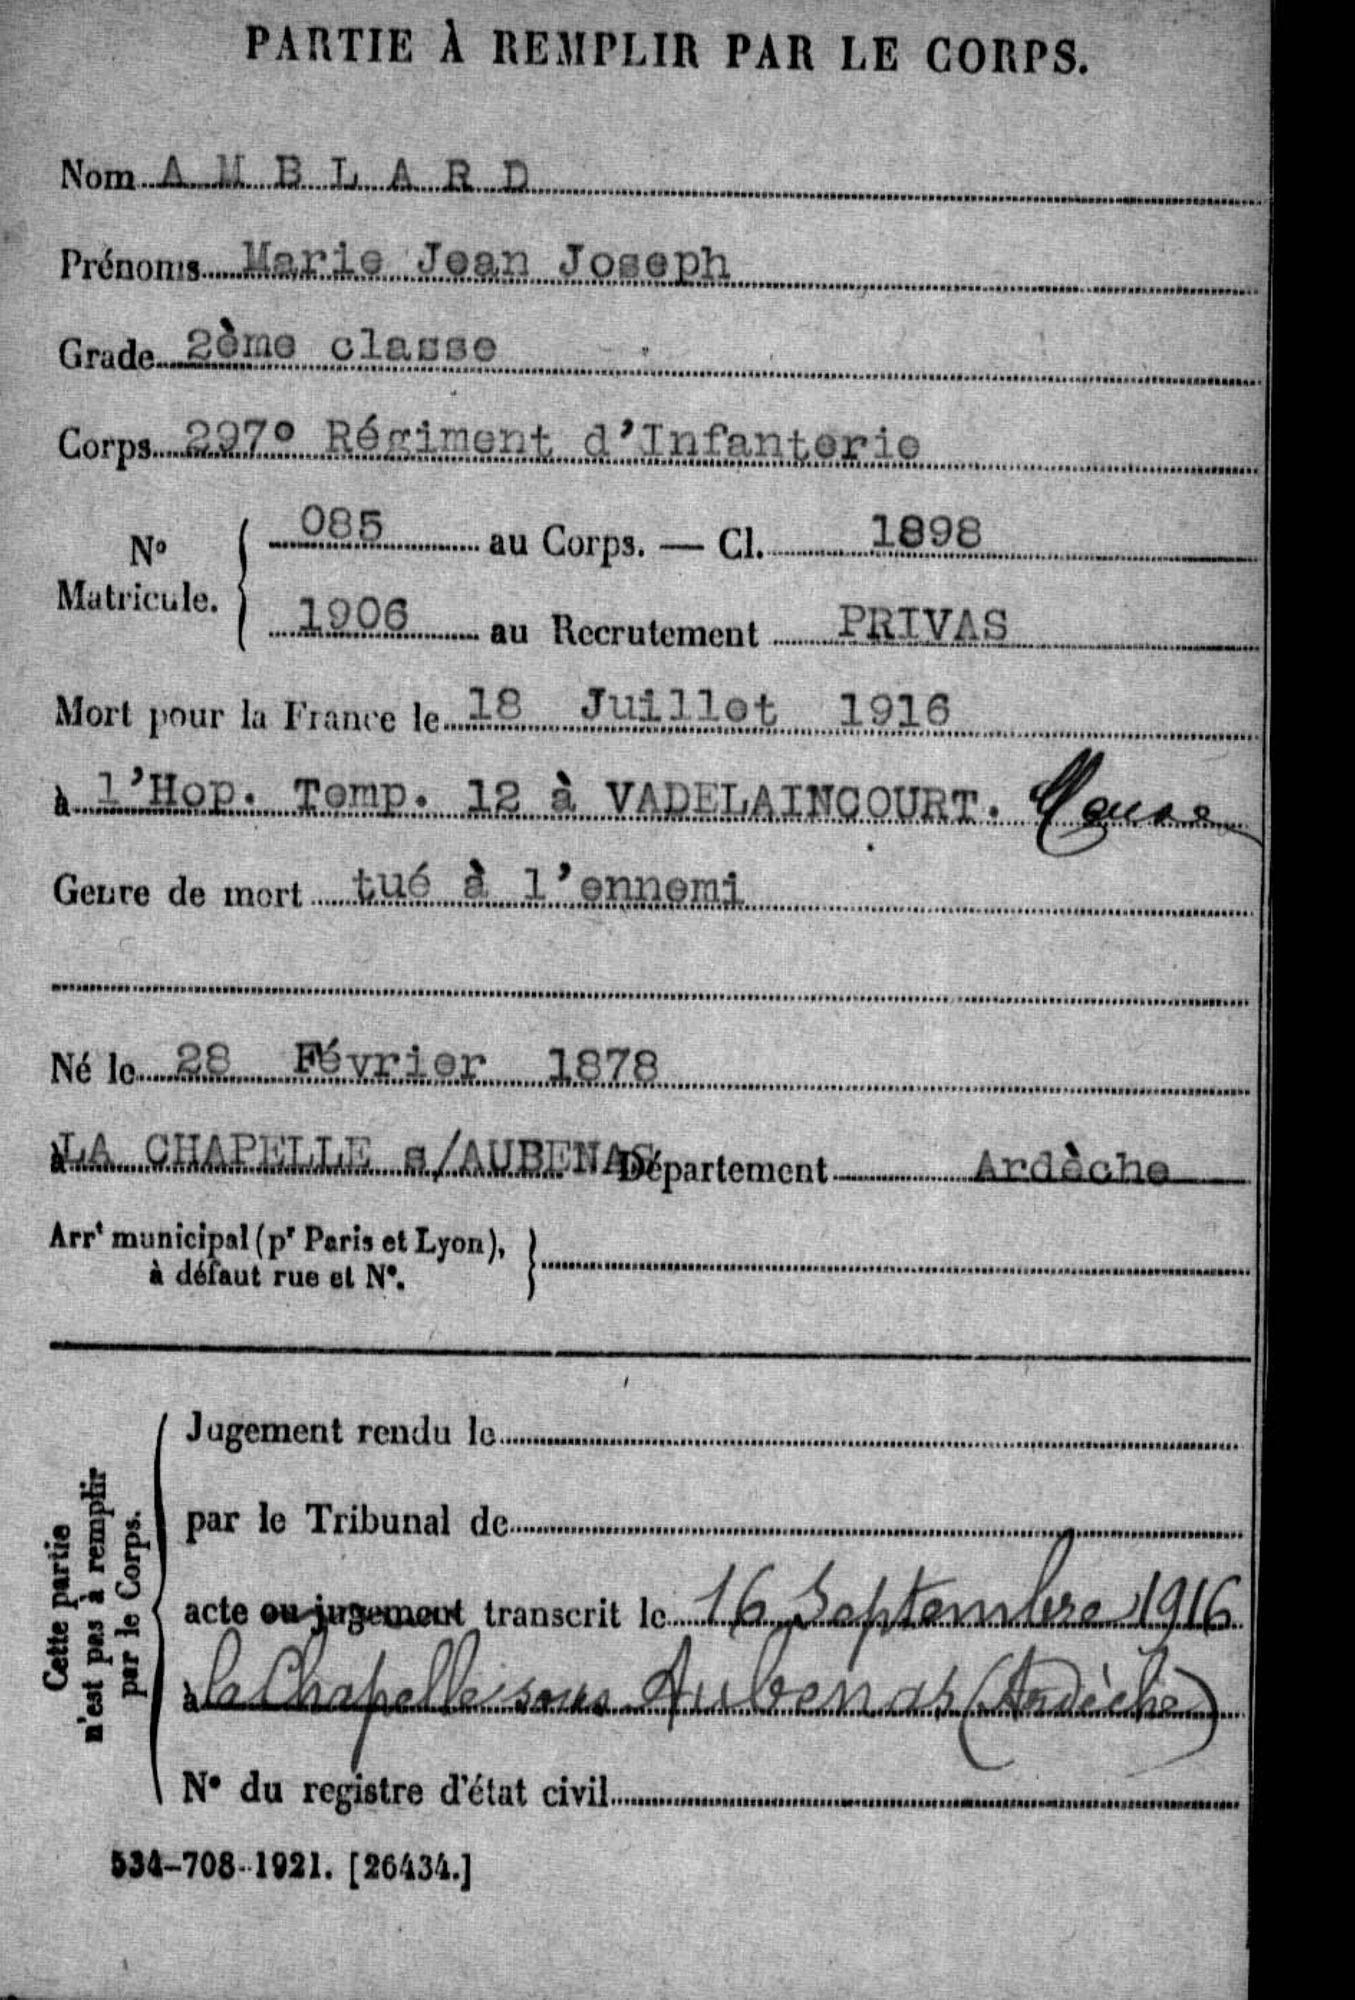 PARTIE À REMPLIR PAR LE CORPS.
Nom AMBLARD
Prénoms Marie Jean Joseph
Grade 2ème classe
Corps 297e Régiment d'Infanterie
N° Matricule. { 085 au Corps. — Cl. 1898
1906 au Recrutement PRIVAS
Mort pour la France le 18 Juillet 1916
à l'Hop. Temp. 12 à VADELAINCOURT. Meuse
Genre de mort tué à l'ennemi
Né le 28 Février 1878
à LA CHAPELLE s/AUBENAS Département Ardèche
Arrt municipal (pr Paris et Lyon),
à défaut rue et N°. }
Cette partie
n'est pas à remplir
par le Corps.
Jugement rendu le
par le Tribunal de
acte ou jugement transcrit le 16 Septembre 1916
à la Chapelle sous Aubenas (Ardèche)
N° du registre d'état civil
534-708-1921. [26434.]